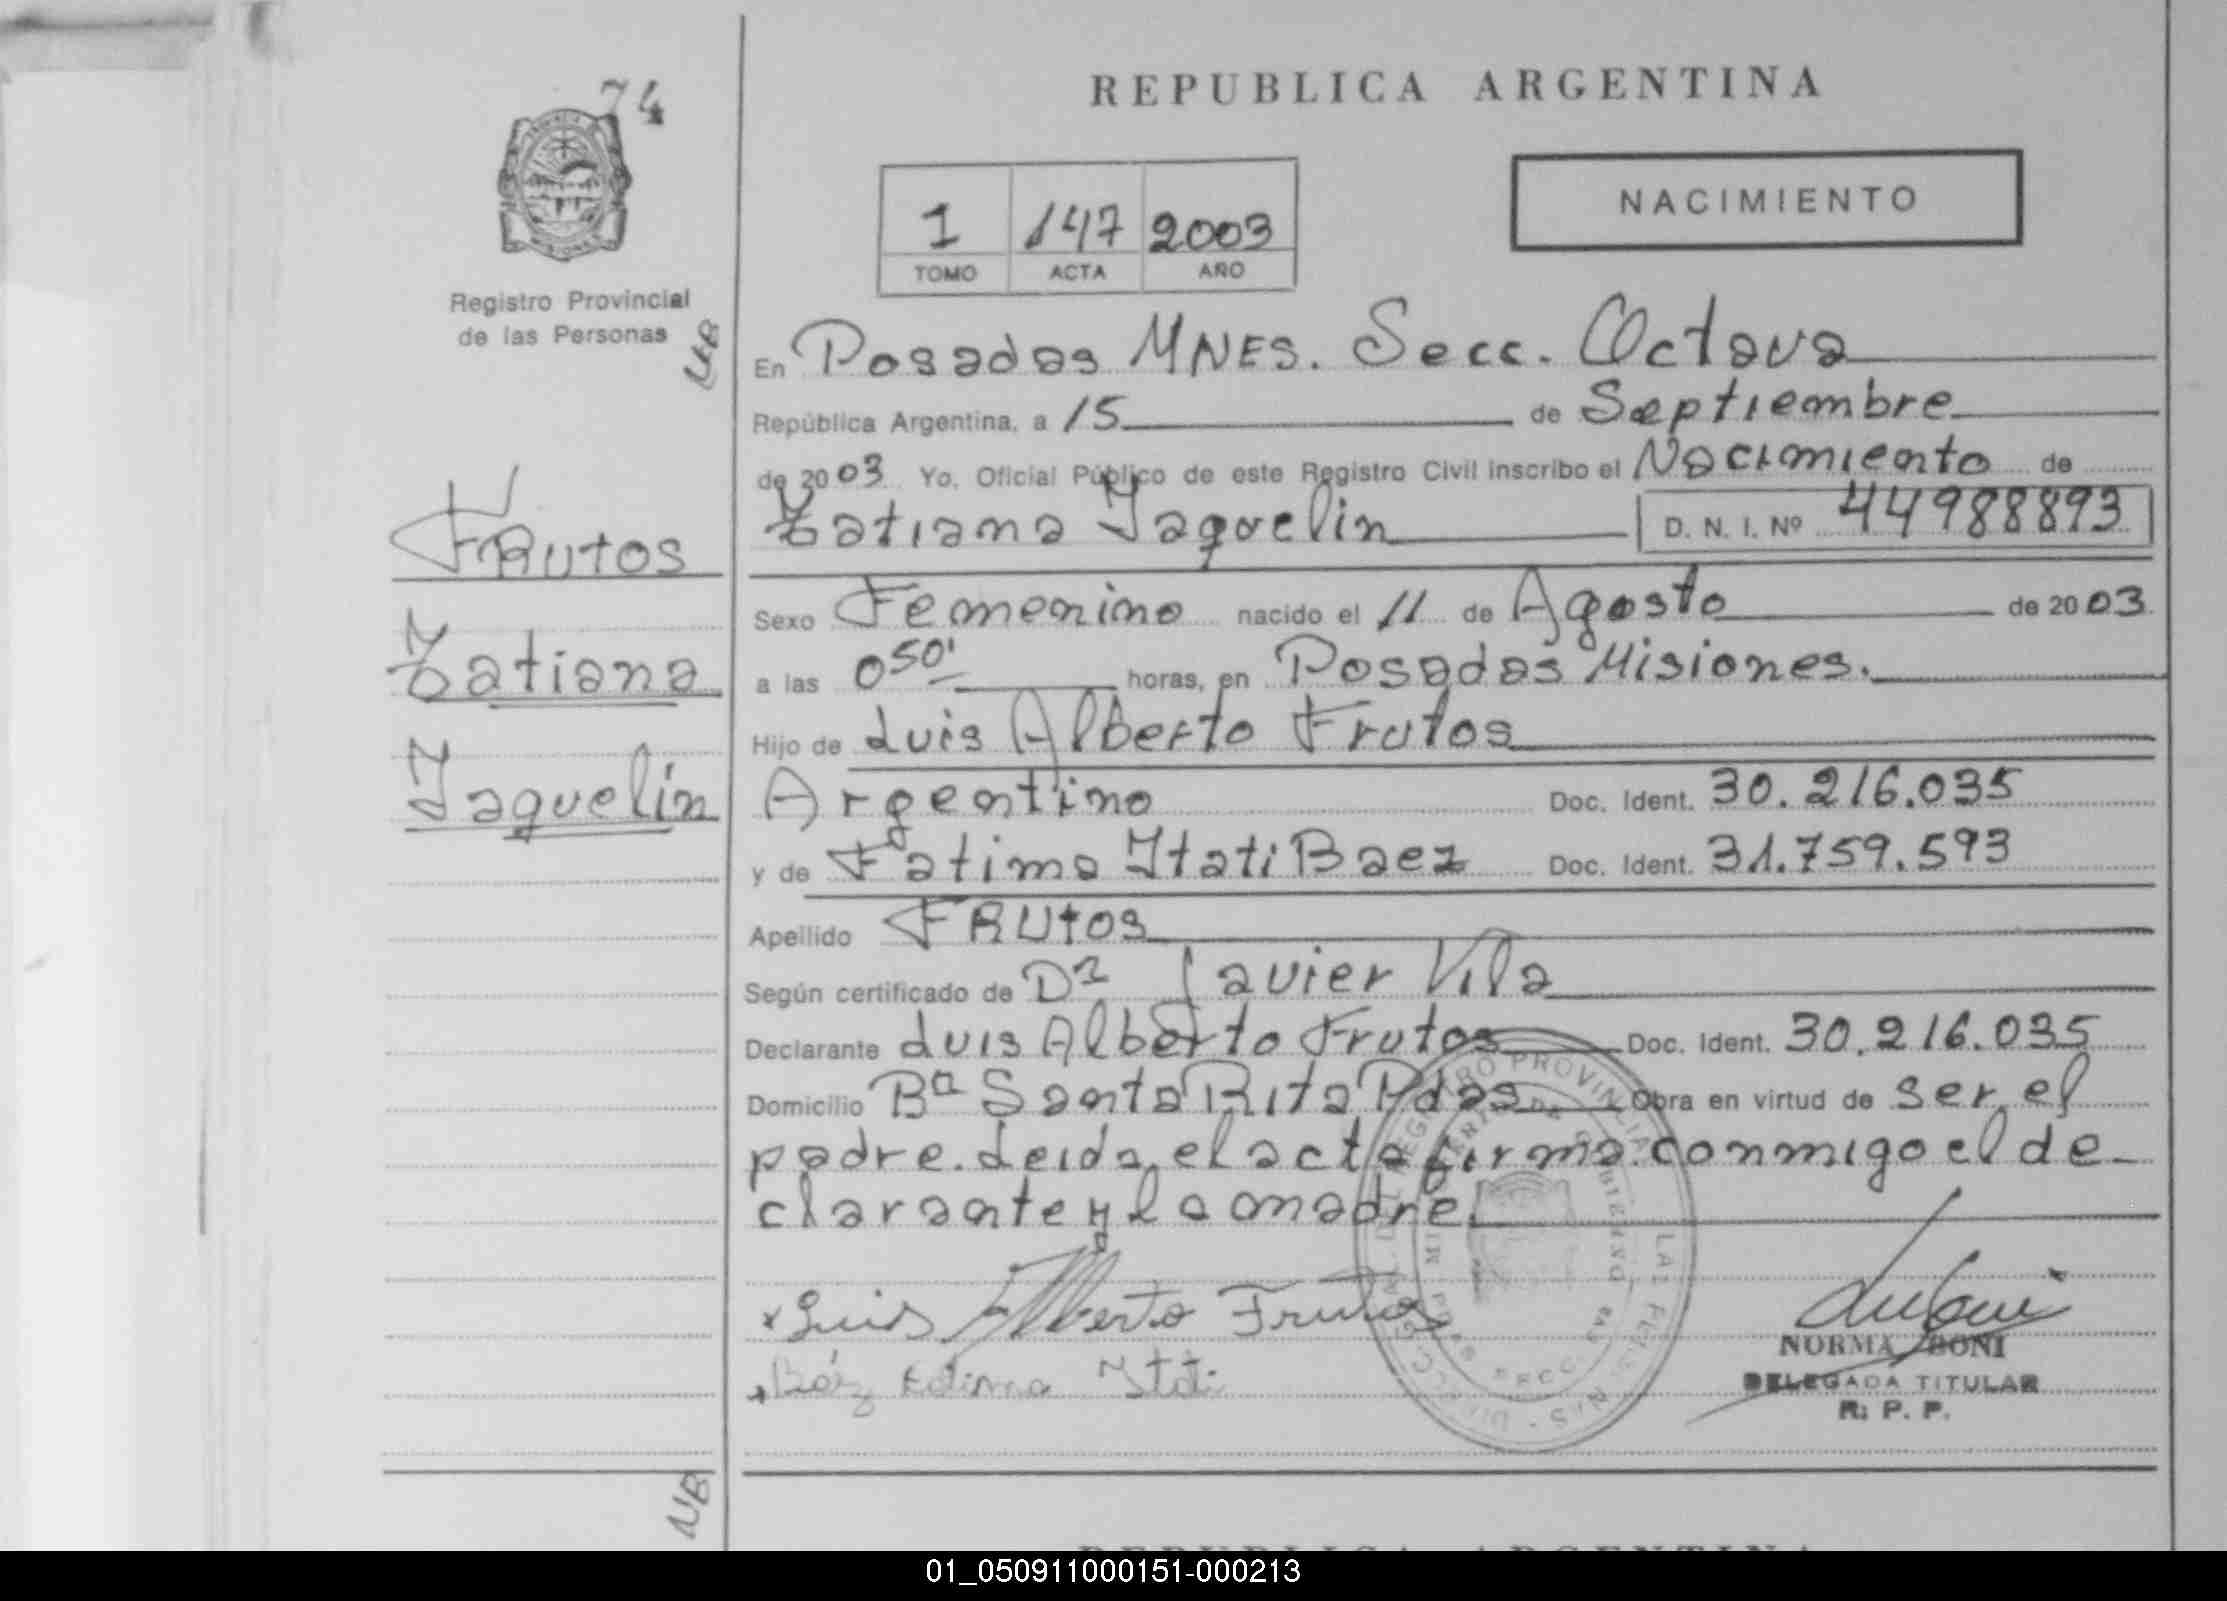 74
Registro Provincial
de las Personas
NB
FRUTOS
Tatiana
Jaquelín
NB
REPUBLICA ARGENTINA
NACIMIENTO
1 147 2003
TOMO ACTA AÑO
En Posadas MNES. Secc. Octava
República Argentina, a 15 de Septiembre
de 2003 Yo, Oficial Público de este Registro Civil inscribo el Nacimiento de
Tatiana Jaquelin D. N. I. Nº 44988893
Sexo Femenino nacido el 11 de Agosto de 2003.
a las 050' horas, en Posadas Misiones.
Hijo de Luis Alberto Frutos
Argentino Doc. Ident. 30.216.035
y de Fatima Itati Baez Doc. Ident. 31.759.593
Apellido FRUTOS
Según certificado de Dr Javier Vila
Declarante Luis Alberto Frutos Doc. Ident. 30.216.035
Domicilio Bº Santa Rita Pdas Obra en virtud de ser el
padre. Leida el acta firma conmigo el de-
clarante y la madre.
x Luis Alberto Frutos
x Báez Fatima Itati
NORMA BONI
DELEGADA TITULAR
R. P. P.
REPUBLICA ARGENTINA
01_050911000151-000213